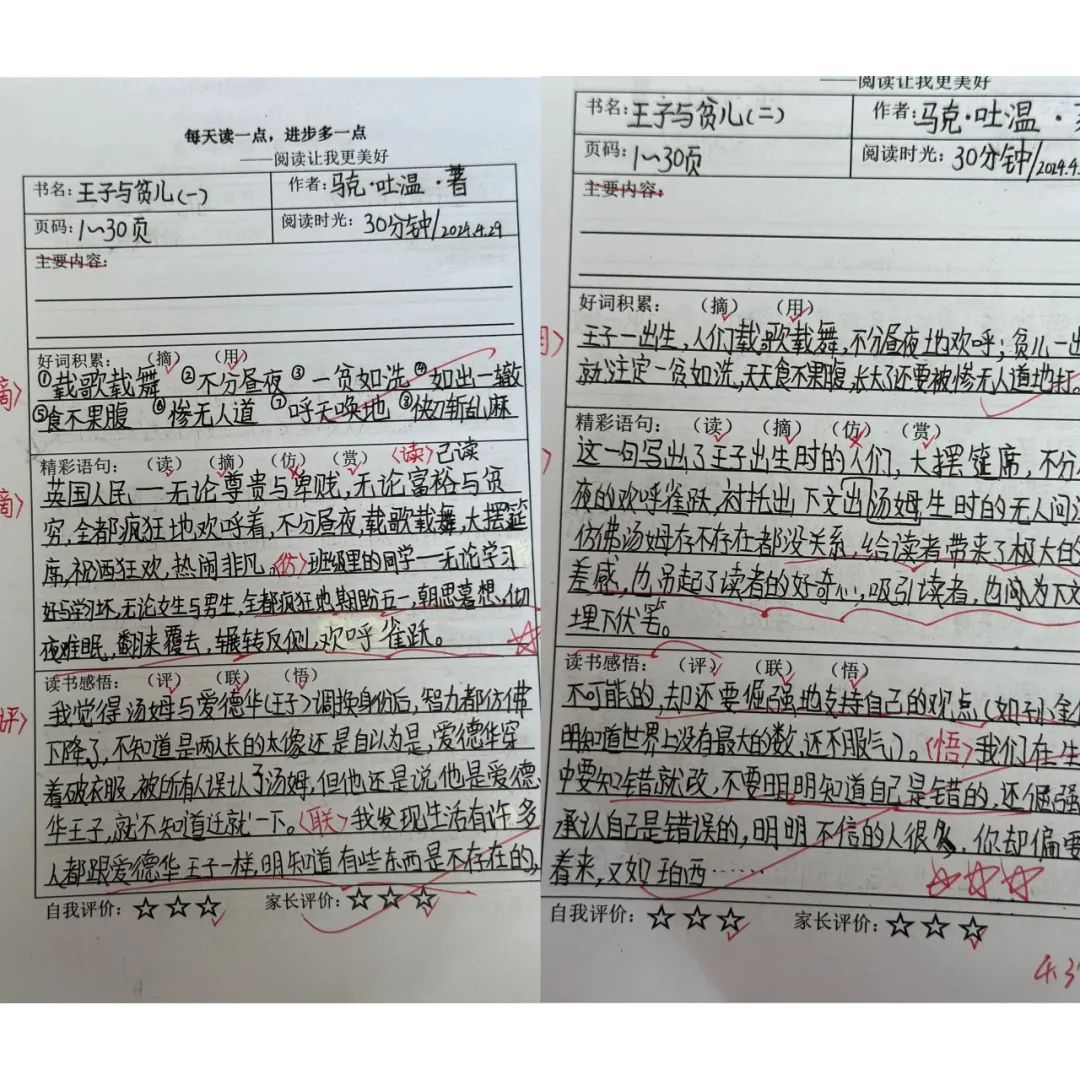 每天读一点，进步多一点
——阅读让我更美好
书名：王子与贫儿（一） 作者：马克·吐温·著
页码：1～30页 阅读时光：30分钟/2024.4.29
主要内容：
好词积累：（摘）（用）
①载歌载舞 ②不分昼夜 ③一贫如洗 ④如出一辙
⑤食不果腹 ⑥惨无人道 ⑦呼天唤地 ⑧快刀斩乱麻
精彩语句：（读）（摘）（仿）（赏）〈读〉已读
英国人民——无论尊贵与卑贱，无论富裕与贫
穷，全都疯狂地欢呼着，不分昼夜，载歌载舞，大摆筵
席，祝酒狂欢，热闹非凡。〈仿〉班级里的同学——无论学习
好与学习坏，无论女生与男生，全都疯狂地期盼五一，朝思暮想，彻
夜难眠，翻来覆去，辗转反侧，欢呼雀跃。
读书感悟：（评）（联）（悟）
我觉得汤姆与爱德华（王子）调换身份后，智力都仿佛
下降了，不知道是两人长的太像还是自以为是，爱德华穿
着破衣服，被所有人误认了汤姆，但他还是说他是爱德
华王子，就不知道迁就一下。〈联〉我发现生活有许多
人都跟爱德华王子一样，明知道有些东西是不存在的，
自我评价：☆☆☆ 家长评价：☆☆☆
摘〉
摘〉
评〉
——阅读让我更美好
书名：王子与贫儿（二） 作者：马克·吐温·
页码：1～30页 阅读时光：30分钟/2024.4.
主要内容：
好词积累：（摘）（用）
王子一出生，人们载歌载舞，不分昼夜地欢呼；贫儿一出
就注定一贫如洗，天天食不果腹，长大了还要被惨无人道地打.
精彩语句：（读）（摘）（仿）（赏）
这一句写出了王子出生时的人们，大摆筵席，不分
夜的欢呼雀跃，衬托出下文出汤姆生时的无人问
仿佛汤姆存不存在都没关系，给读者带来了极大的
差感，也吊起了读者的好奇心，吸引读者，也间为下文
埋下伏笔。
读书感悟：（评）（联）（悟）
不可能的，却还要倔强地支持自己的观点（如
明知道世界上没有最大的数，还不服气）。〈悟〉我们在生
中要知错就改，不要明明知道自己是错的，还倔强
承认自己是错误的，明明不信的人很多，你却偏要
着来，又如珀西……
自我评价：☆☆☆ 家长评价：☆☆☆